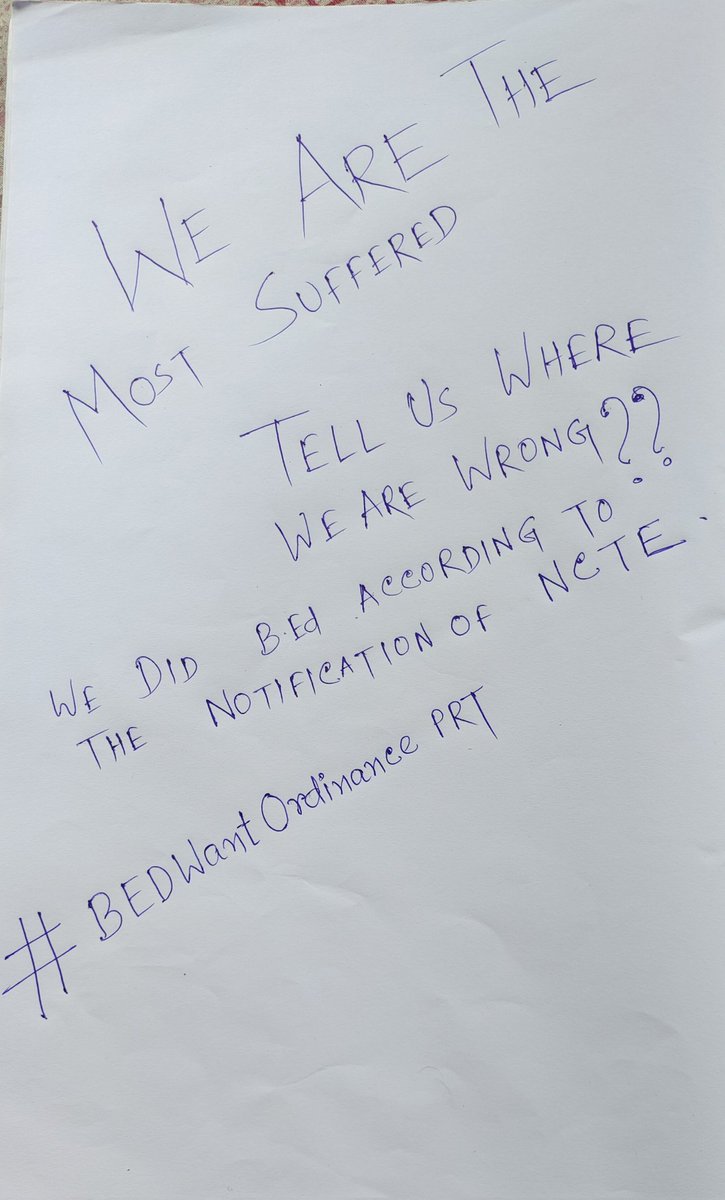 WE ARE THE
MOST SUFFERED
TELL US WHERE
WE ARE WRONG??
WE DID B.Ed ACCORDING TO
THE NOTIFICATION OF NCTE.
#BEDWantOrdinance PRT